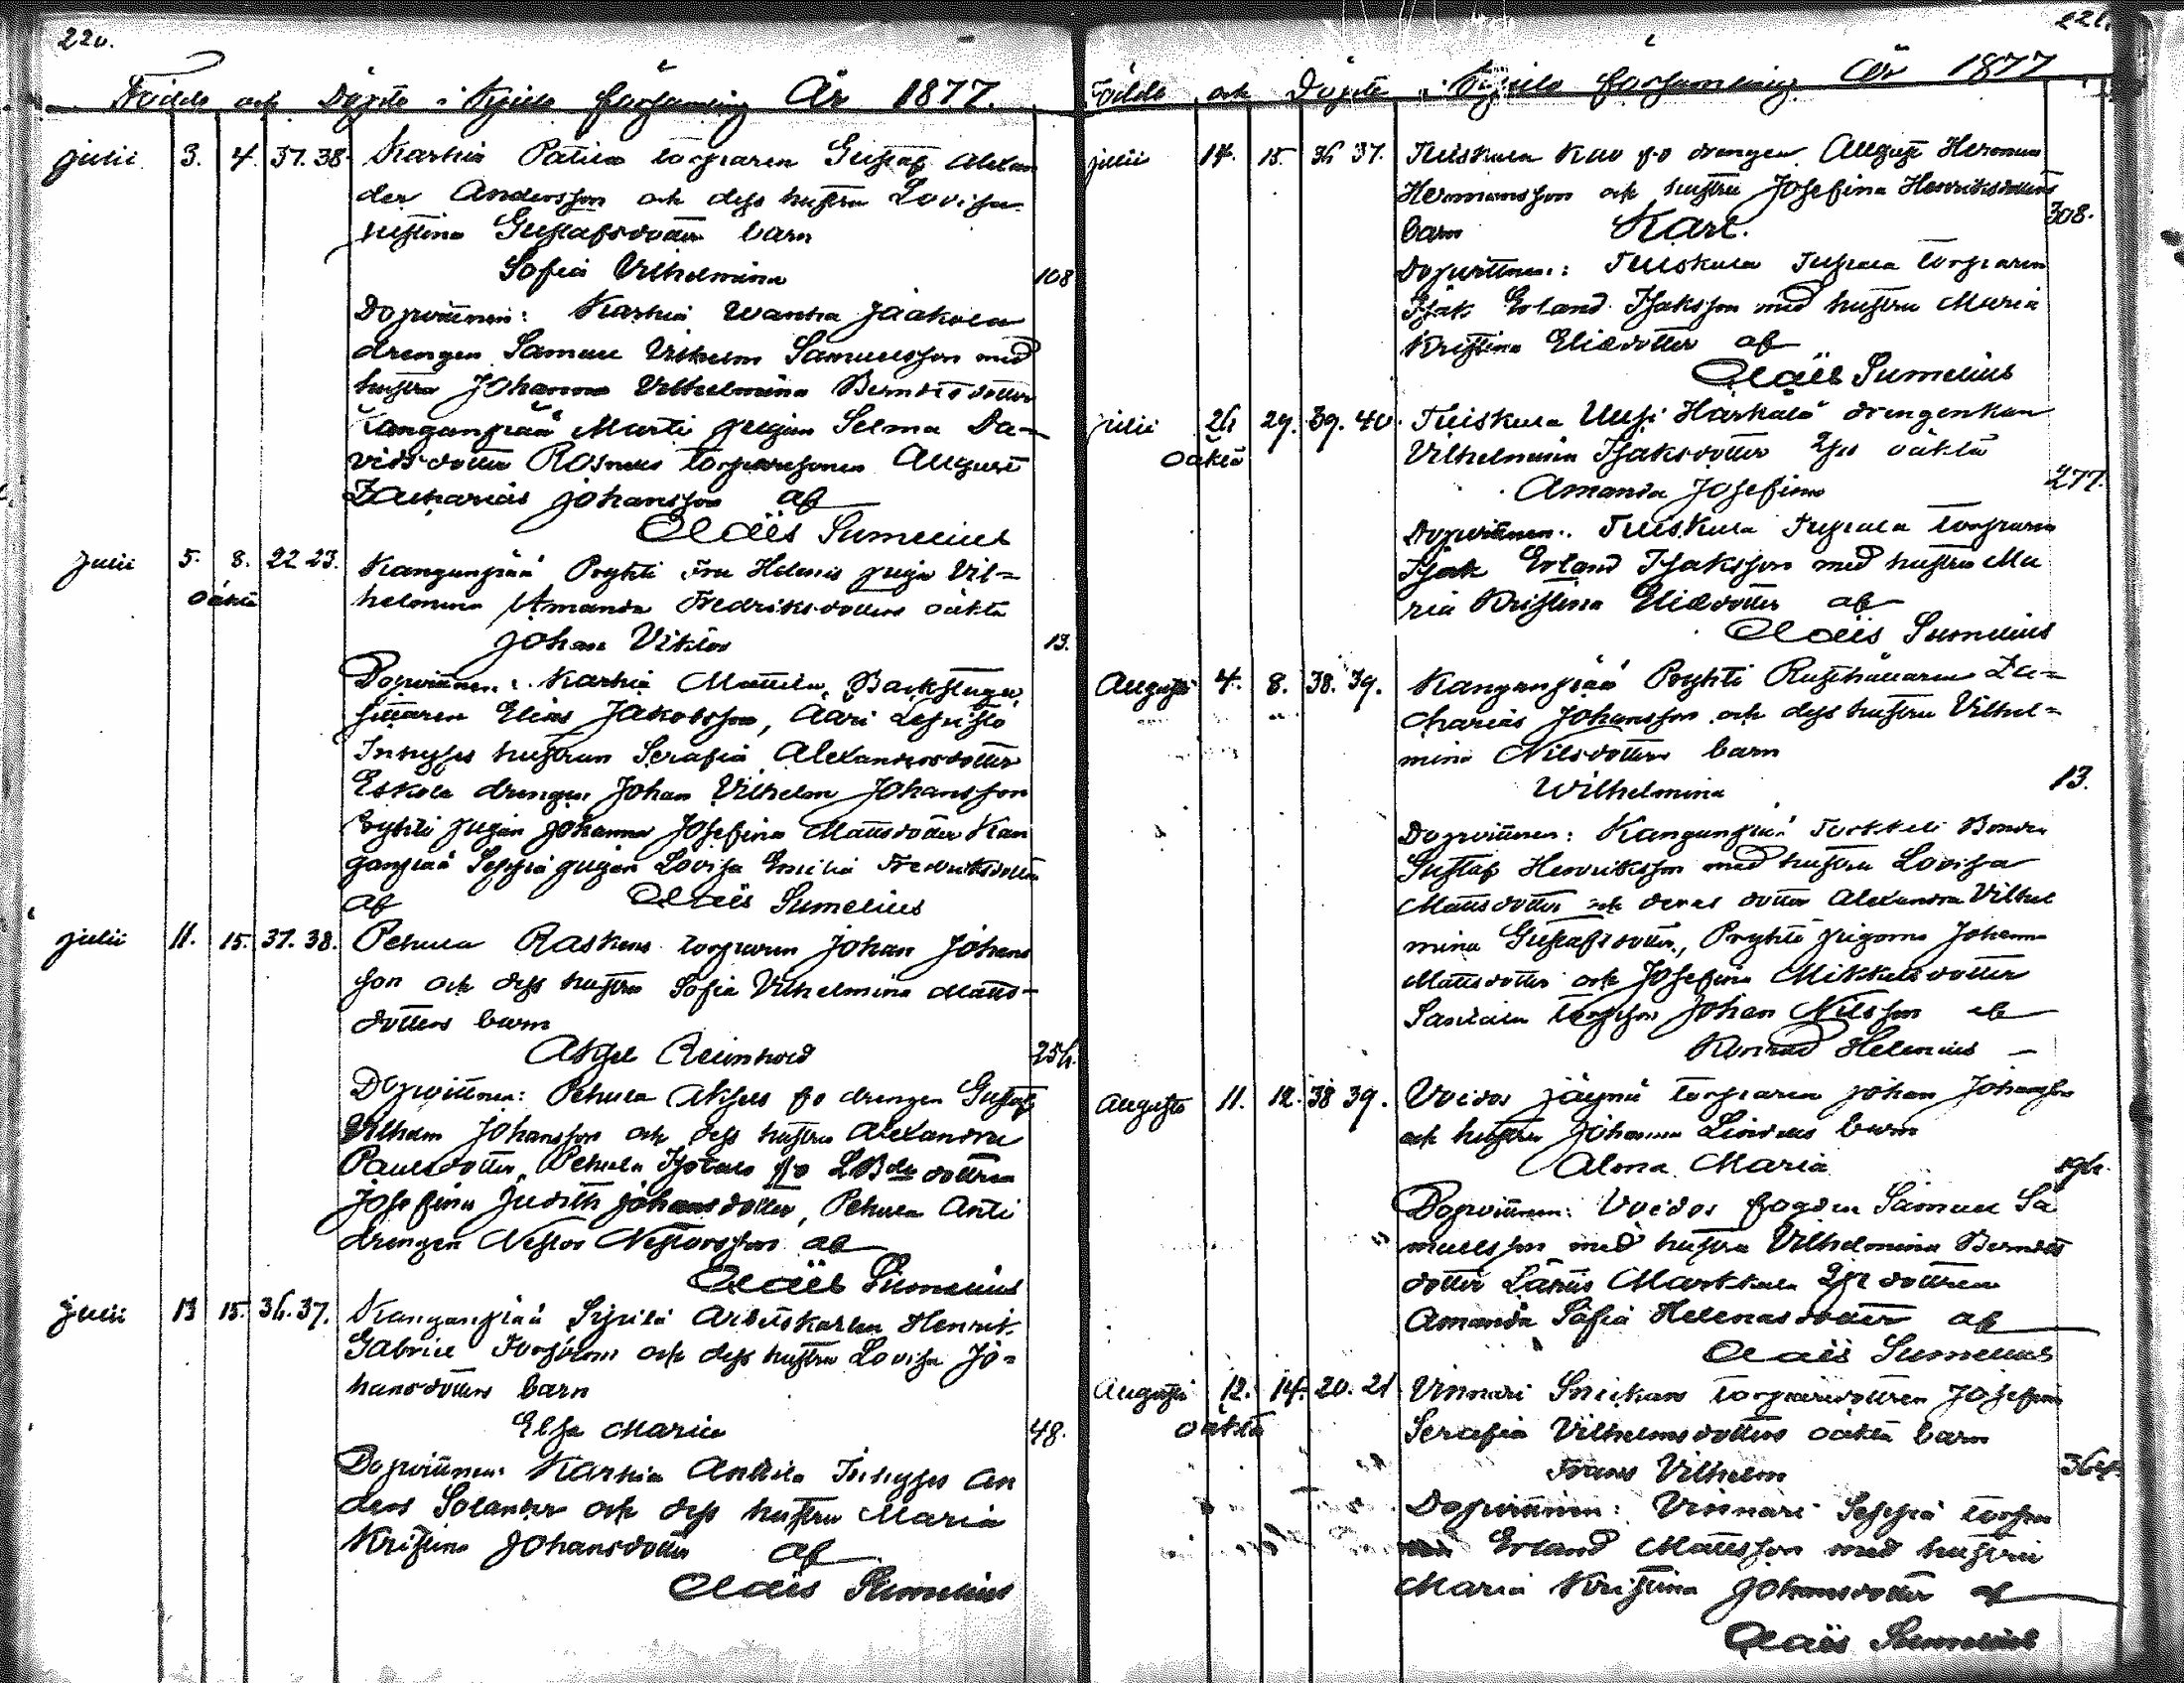 220.
Födde och Döpte i Kjulo församling År 1877.
julii 3. 4. 37.38. Karhia Patila torparen Gustaf Alexan
der Andersson och dess hustru Lovisa
kristina Gustafsdotters barn
Sofia Vilhelmina 108
Dopvittnen: Karhia Wanha Jaakola
drengen Samuel Vilhelm Samuelsson med
hustru Johanna Vilhelmina Berndtsdotter
Kanganpää Martti pigan Selma Da-
vidsdotter torparesonen August
Zacharias Johansson af
Claës Sumelius
Julii 5. 8. 22 23. Kanganpää Pryhti Fru Helenii piga Vil=
oäkta helmina Amanda Fredriksdotters oäkta
Johan Viktor 13.
Dopvittnen: Karhia Mattila Backstugu
sittaren Elias Jakobsson, Aari
Inhyses hustrun Serafia Alexandersdotter
Eskola drengen Johan Vilhelm Johansson
Pryhti pigan Johanna Josefina Mattsdotter Kan
ganpää Seppä pigan Lovisa Emilia Fredriksdotter
af Claës Sumelius
julii 11. 15. 37.38. Pehula torparen Johan Johans
son och dess hustru Sofia Vilhelmina Matts-
dotters barn
Aksel Reinhold 256.
Dopvittnen: Pehula drengen Gustaf
Vilhelm Johansson och dess hustru Alexandra
Paulsdotter, Pehula Isotalo dottren
Josefina Judith Johansdotter, Pehula Anti
drengen Nestor Nestorsson af
Claës Sumelius
julii 13 15. 36.37. Kanganpää Arbetskarlen Henrik
Gabriel och dess hustru Lovisa Jo=
hansdotters barn
Elsa Maria 48.
Dopvittnen: Karhia Anttila Inhyses An
ders Solander och dess hustru Maria
Kristina Johansdotter af
Claës Sumelius
221.
Födde och Döpte i Kjulo församling År 1877
julii 14. 15. 36 37. Tuiskula drengen August Herman
Hermansson och hustru Josefina Henriksdotters
barn Karl. 308.
Dopvittnen: Tuiskula torparen
Isak Erland Isaksson med hustru Maria
Kristina Eliædotter af
Claës Sumelius
julii 26 29. 39. 40. Tuiskula Uusi Härkälä
oäkta Vilhelmina Isaksdotters oäkta
Amanda Josefina 277.
Dopvittnen: Tuiskula torparen
Isak Erland Isaksson med hustru Ma
ria Kristina Eliædotter af
Claës Sumelius
Augusti 4. 8. 38. 39. Kanganpää Pryhti Rusthållaren Za=
charias Johansson och dess hustru Vilhel=
mina Nilsdotters barn
Wilhelmina 13.
Dopvittnen: Kanganpää Torkkeli Bonden
Gustaf Henriksson med hustru Lovisa
Mattsdotter och deras dotter Alexandra Vilhel
mina Gustafsdotter, Pryhti pigorna Johanna
Mattsdotter och Josefina Mikkelsdotter
Johan Nilsson af
Konrad Helenius
Augusti 11. 12. 38 39. Voitos torparen Johan Johansson
och hustru Johanna barn
Alma Maria 196.
Dopvittnen: Voitos fogden Samuel Sa
muelsson med hustru Vilhelmina Berndts
dotter Markkula dottren
Amanda Sofia Helenasdotter af
Claës Sumelius
Augusti 12. 14. 20. 21 Vinnari torparedottren Josefina
oäkta Serafia Vilhelmsdotters oäkta barn
Frans Vilhelm 364.
Dopvittnen: Vinnari Seppä
Erland Mattsson med hustru
Maria Kristina Johansdotter af
Claës Sumelius